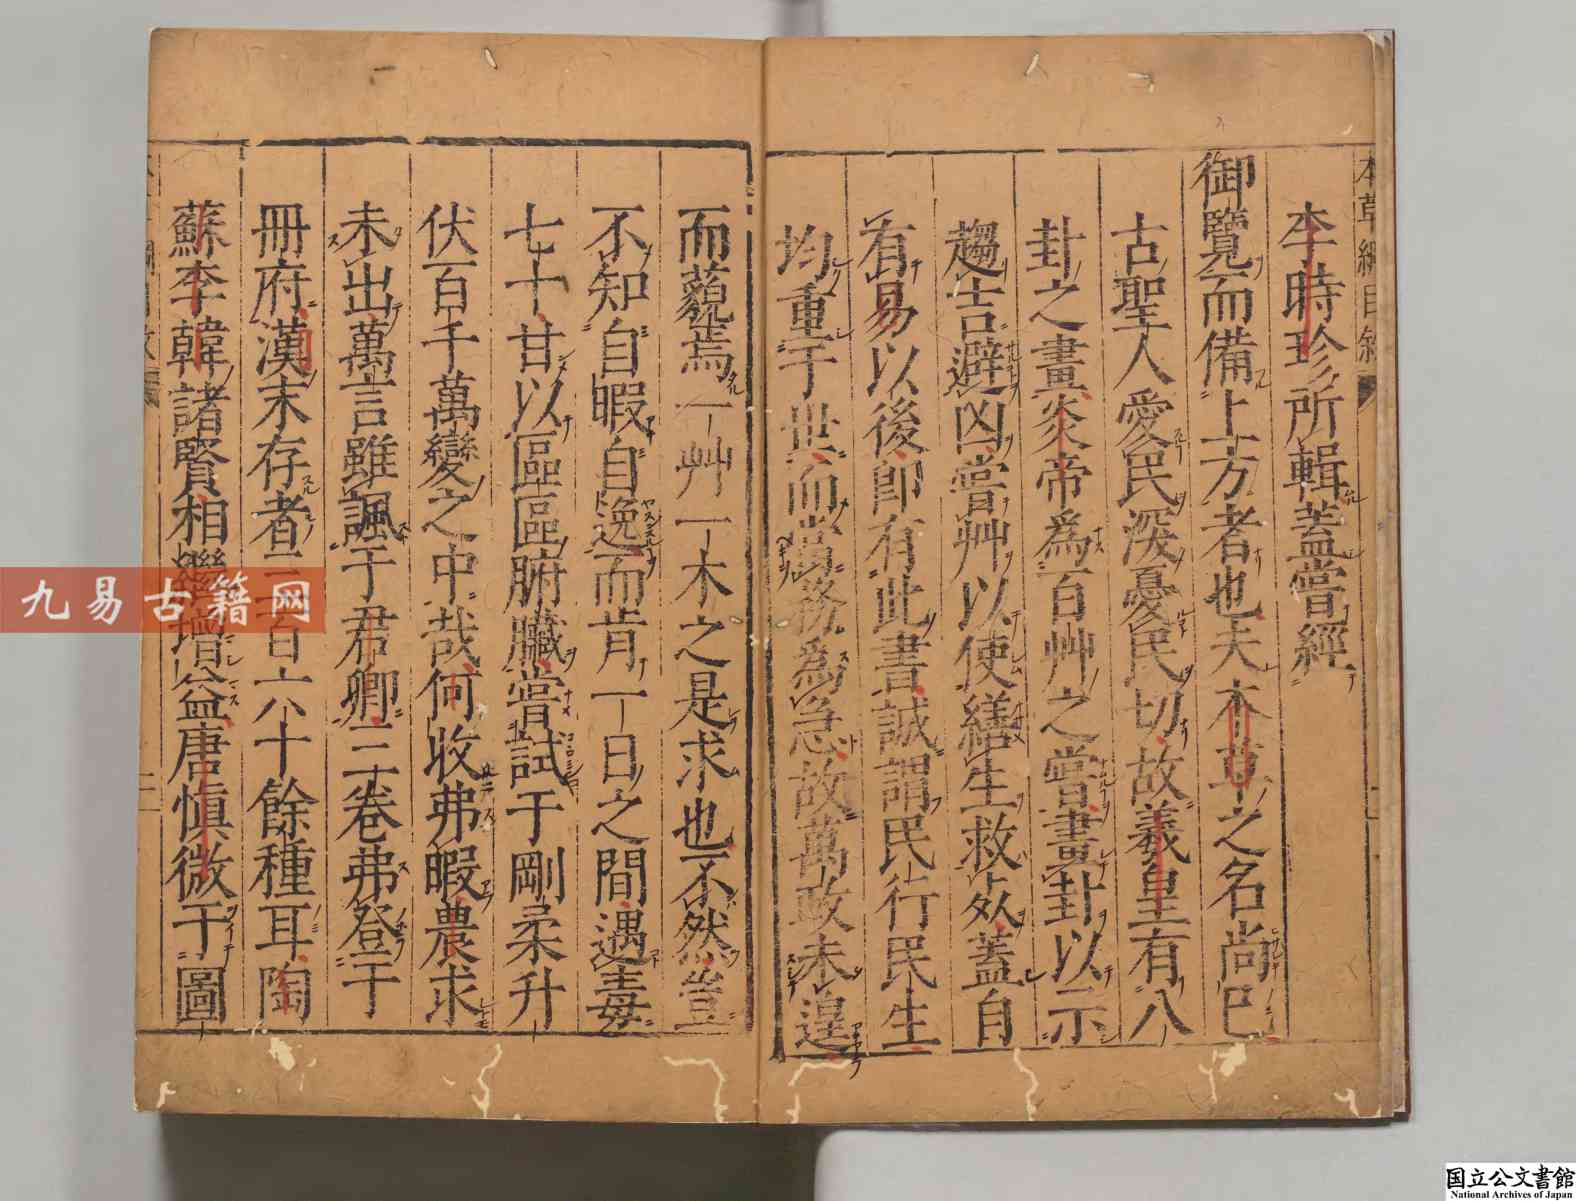 本草綱目敘
李時珍所輯蓋嘗經
御覽而備上方者也夫本草之名尚已
古聖人愛民深憂民切故羲皇有八
卦之畫炎帝為百艸之嘗畫卦以示
趨吉避凶嘗艸以使繕生救死蓋自
有易以後即有此書誠謂民行民生
均重于世而當務為急故萬政未遑
而藐焉一艸一木之是求也不然豈
不知自暇自逸而肯一日之間遇毒
七十甘以區區腑臟嘗試于剛柔升
伏百千萬變之中哉何收弗暇農求
未出萬言雖諷于君卿三卷弗登于
冊府漢末存者三百六十餘種耳陶
蘇李韓諸賢相繼增益唐慎微于圖
九易古籍网
国立公文書館
National Archives of Japan